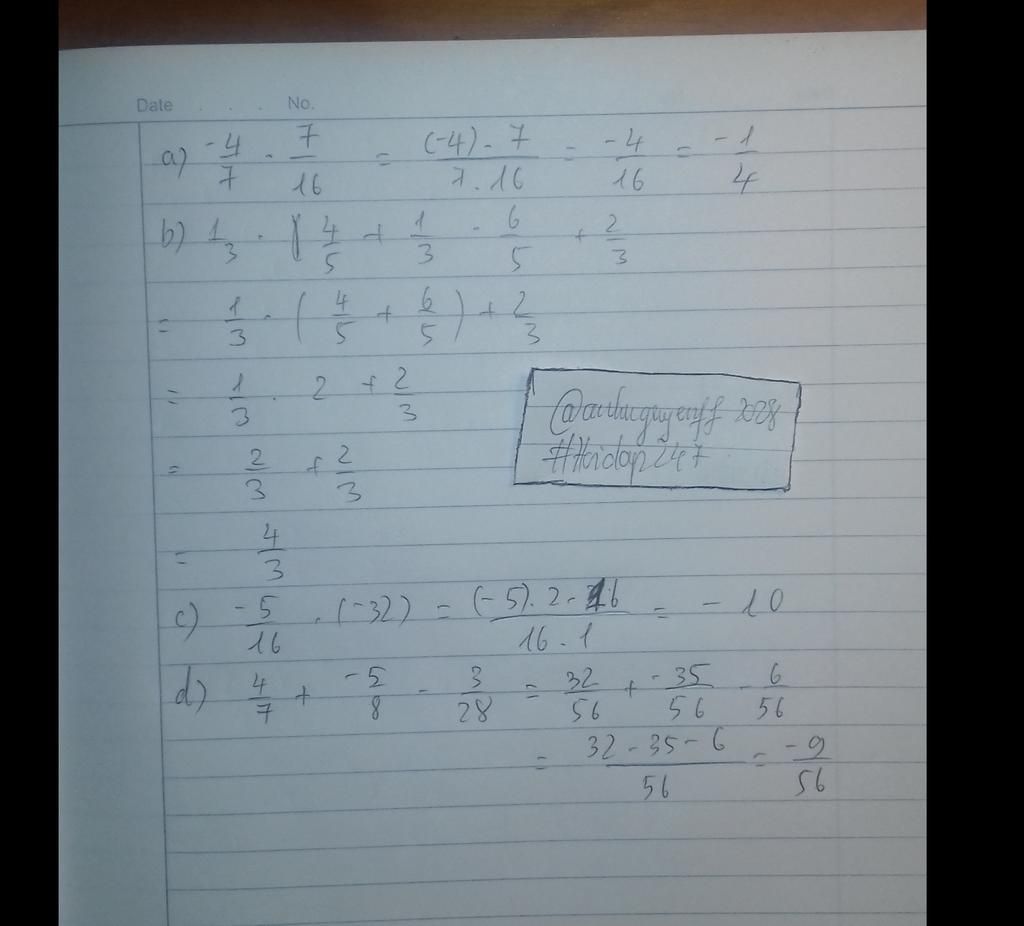 Date . . . No.
a) -4/7 . 7/16 = (-4) . 7 / 7 . 16 = -4/16 = -1/4
b) 1/3 . 4/5 + 1/3 . 6/5 + 2/3
= 1/3 . ( 4/5 + 6/5 ) + 2/3
= 1/3 . 2 + 2/3
= 2/3 + 2/3
= 4/3
2028
#Hoidap247
c) -5/16 . (-32) = (-5) . 2 . 16 / 16 . 1 = -10
d) 4/7 + -5/8 - 3/28 = 32/56 + -35/56 - 6/56
= 32 - 35 - 6 / 56 = -9/56